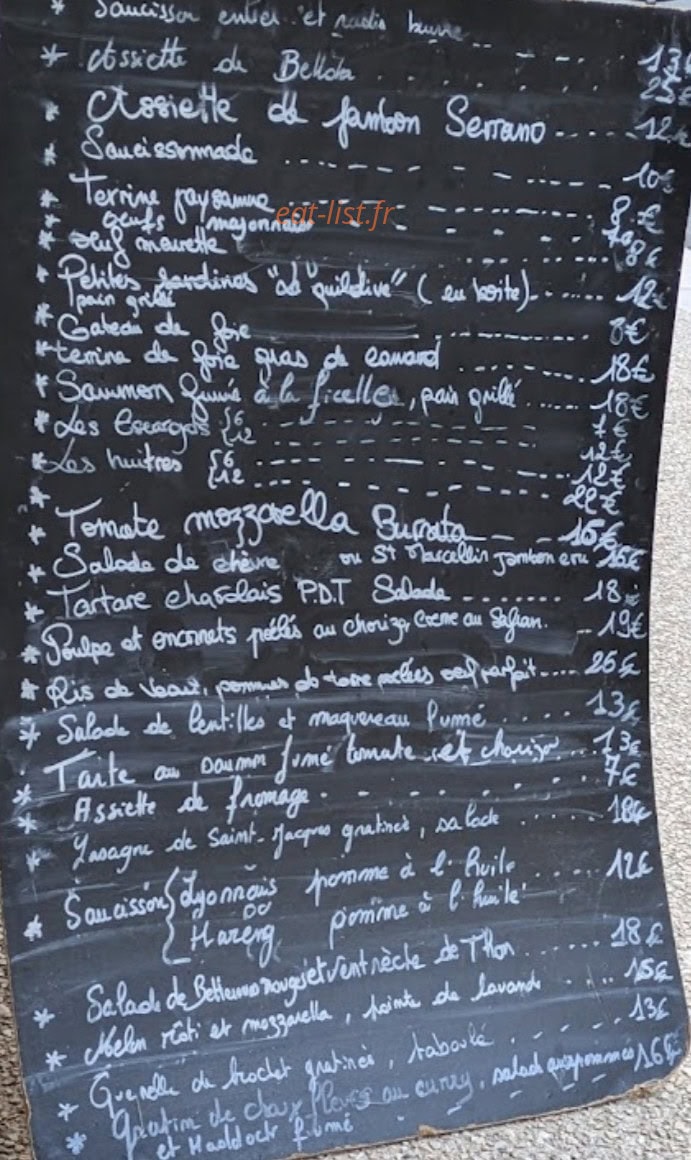 * Saucisson entier et radis beurre ...... 13€
* Assiette de Bellota ...... 25€
* Assiette de jambon Serrano ..... 12€
* Saucissonnade ...... 10€
* Terrine paysanne ...... 8€
* oeufs mayonnaise ......
eat-list.fr
* oeuf meurette ...... 8€
* Petites sardines "la quildive" (en boite) ..... 12€
pain grillé
* Gateau de foie ...... 8€
* terrine de foie gras de canard ...... 18€
* Saumon fumé à la ficelle, pain grillé ..... 18€
* Les Escargots { 6 ...... 7€
12 ...... 12€
* Les huitres { 6 ...... 12€
12 ...... 22€
* Tomate mozzarella Burrata ..... 16€
* Salade de chèvre ou St Marcellin jambon cru 15€
* Tartare charolais P.D.T Salade ....... 18€
* Poulpe et encornets poêlés au chorizo, Creme au Safran. .. 19€
* Ris de veau, pommes de terre poelées oeuf parfait .... 26€
* Salade de lentilles et maquereau fumé ..... 13€
* Tarte au saumon fumé tomate et chorizo ... 13€
* Assiette de fromage ...... 7€
* Lasagne de Saint-Jacques gratinée, salade ...... 18€
* Saucisson { Lyonnais pomme à l'huile .... 12€
ou
Hareng pomme à l'huile
* Salade de Betteraves rouges et ventrèche de Thon ..... 18€
* Melon rôti et mozzarella, pointe de lavande .... 15€
* Quenelle de brochet gratinée, taboulé ...... 13€
* Gratin de choux fleurs au curry, salade aux pommes 16€
et Haddock fumé